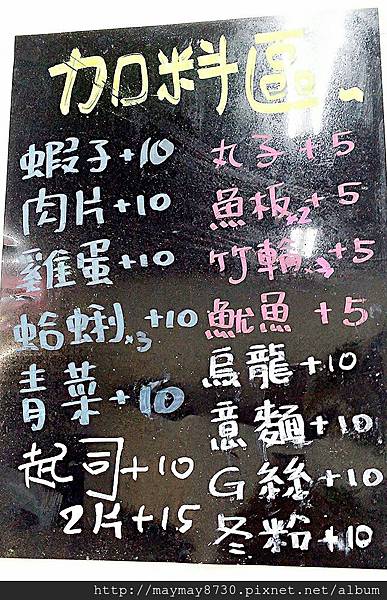 加料區~
蝦子+10
肉片+10
雞蛋+10
蛤蜊x3+10
青菜+10
起司+10
2片+15
丸子+5
魚板x2+5
竹輪x3+5
魷魚+5
烏龍+10
意麵+10
G絲+10
冬粉+10
http://maymay8730.pixnet.net/album